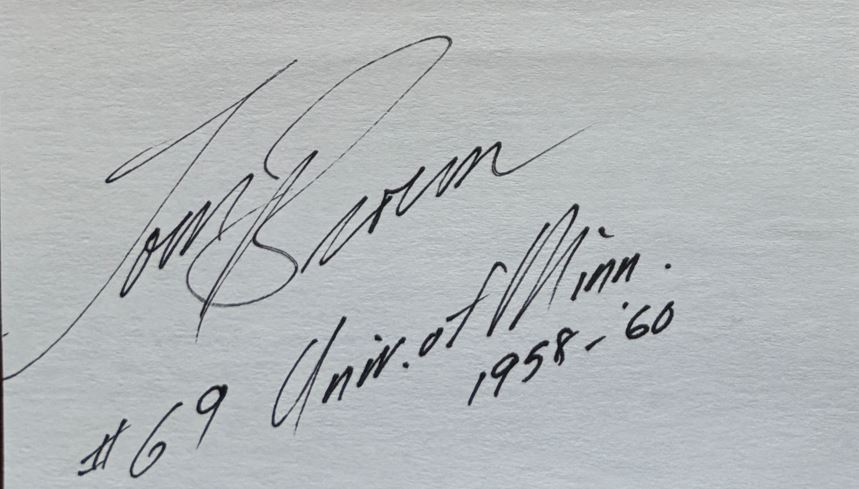 Tom Brown
#69 Univ. of Minn.
1958-'60